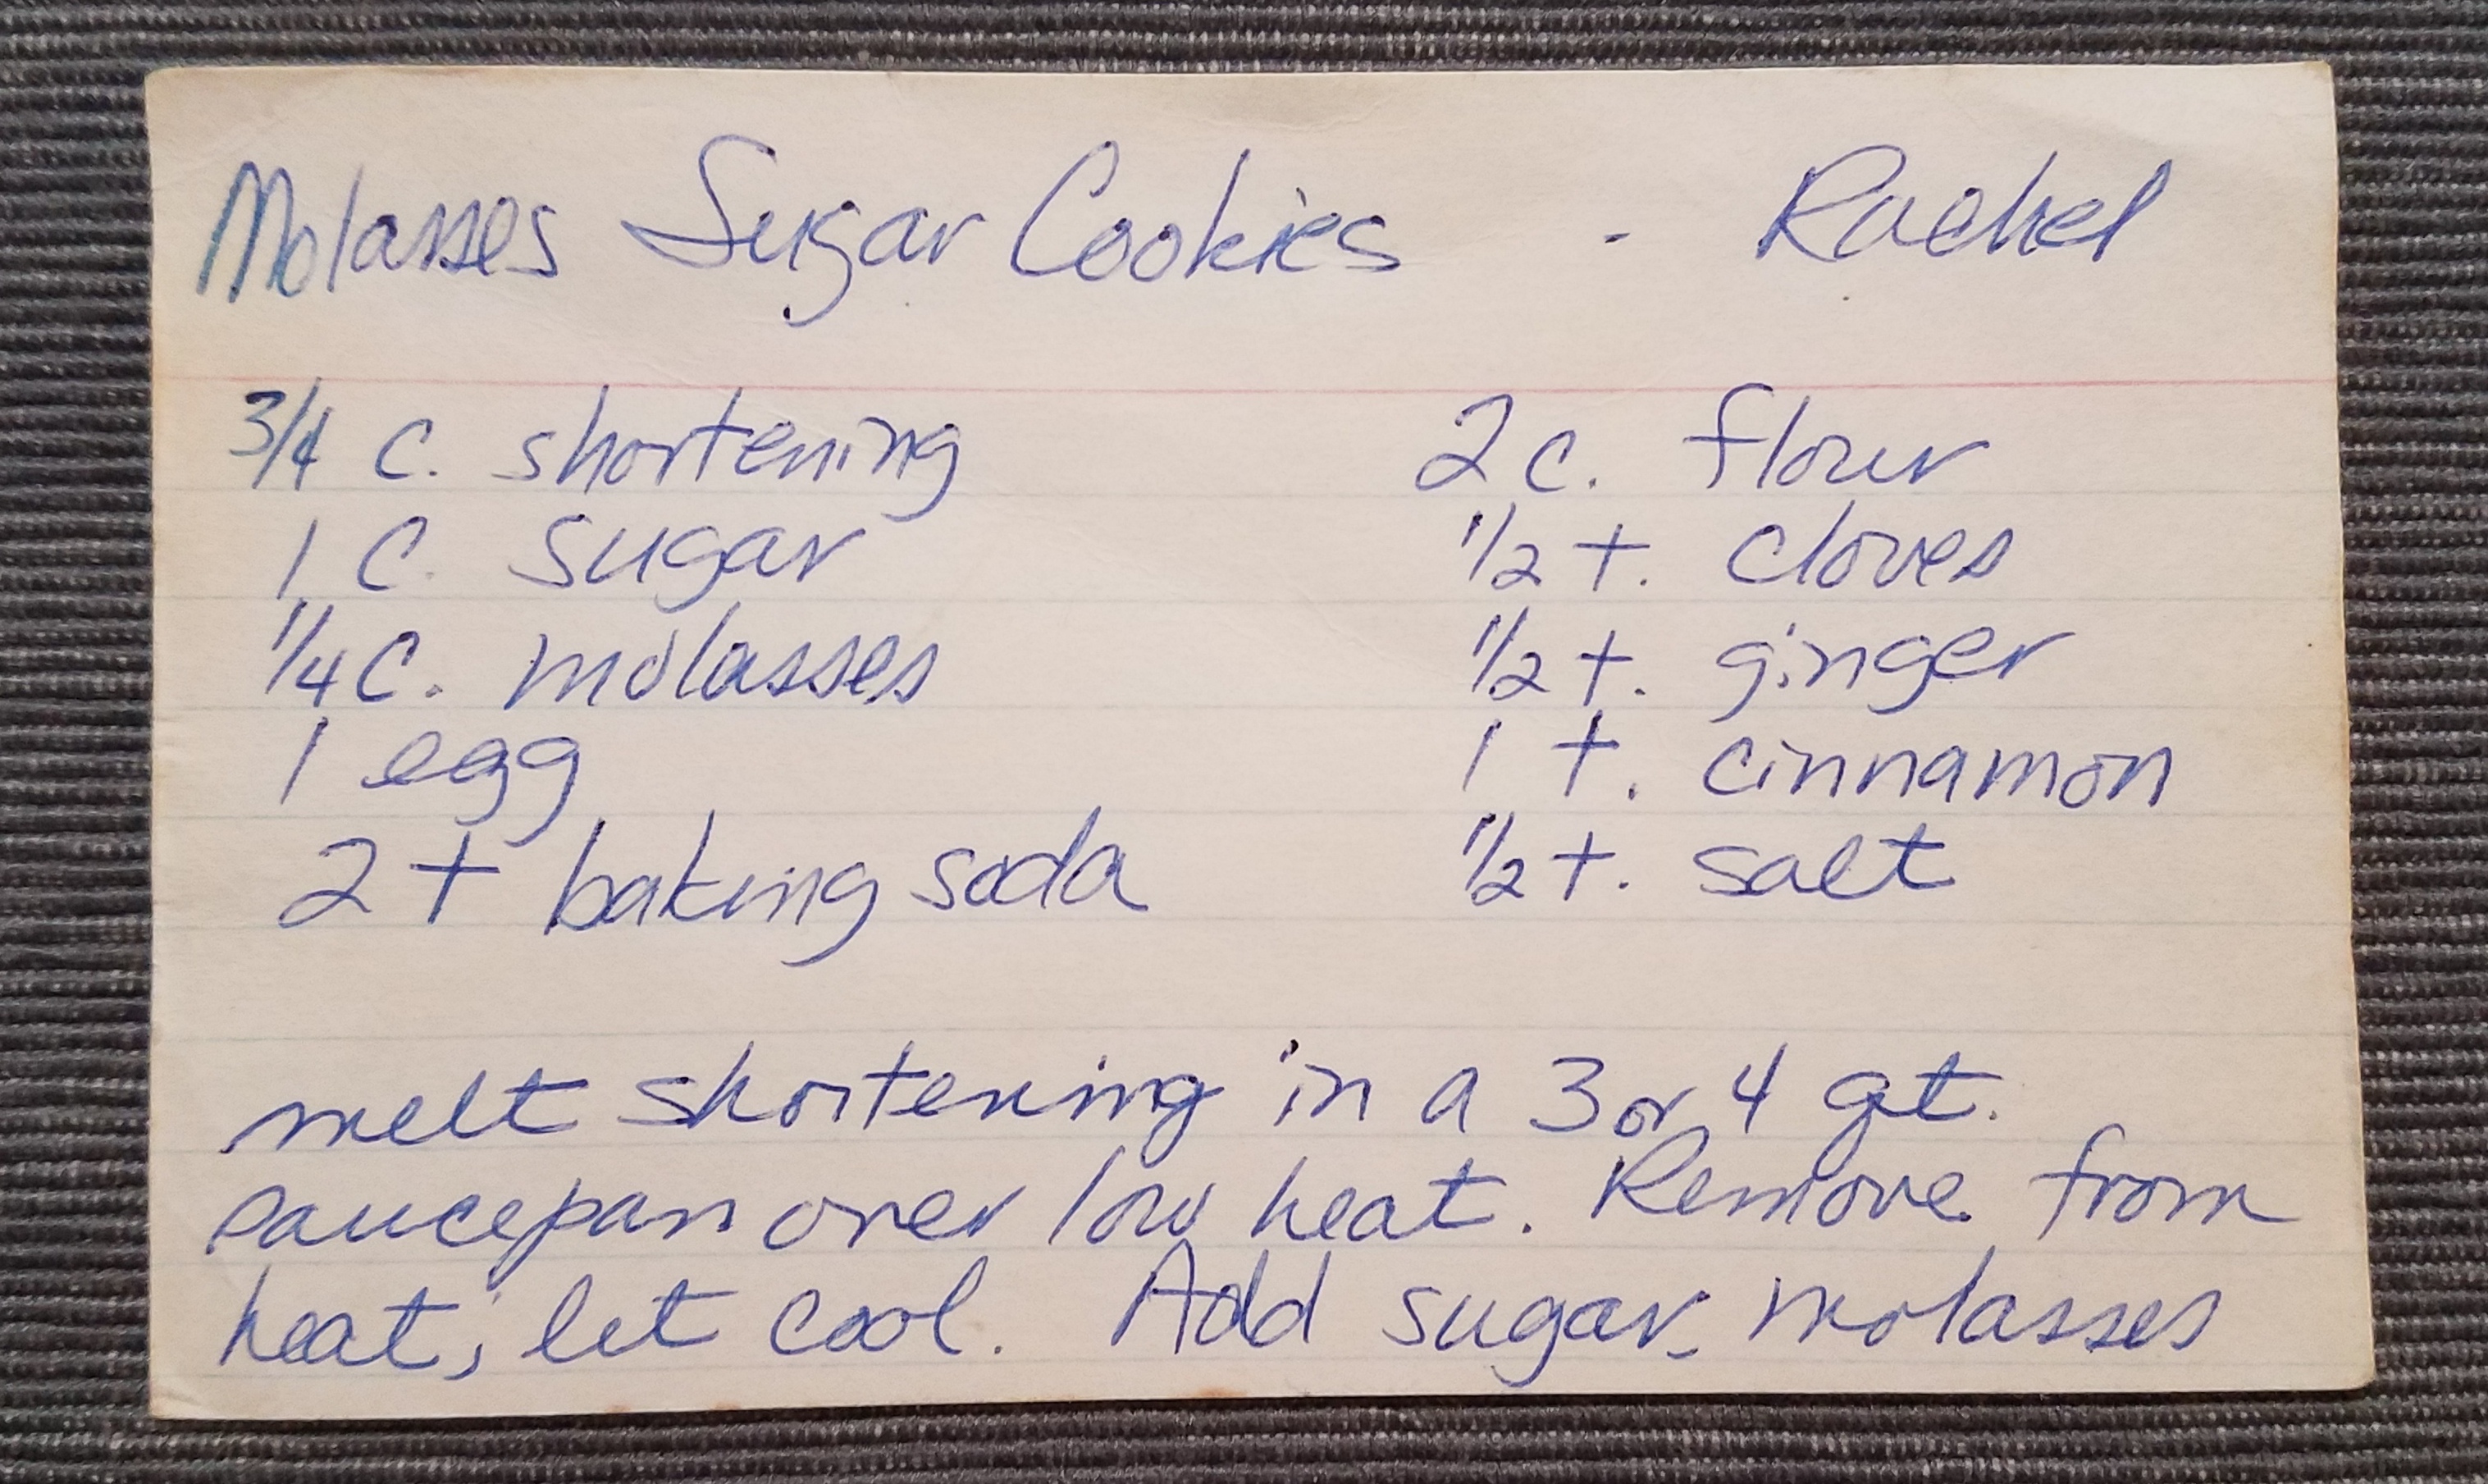 Molasses Sugar Cookies - Rachel
3/4 c. shortening
1 c. sugar
1/4 c. molasses
1 egg
2 t baking soda
2 c. flour
1/2 t. cloves
1/2 t. ginger
1 t. cinnamon
1/2 t. salt
melt shortening in a 3 or 4 qt.
saucepan over low heat. Remove from
heat; let cool. Add sugar, molasses